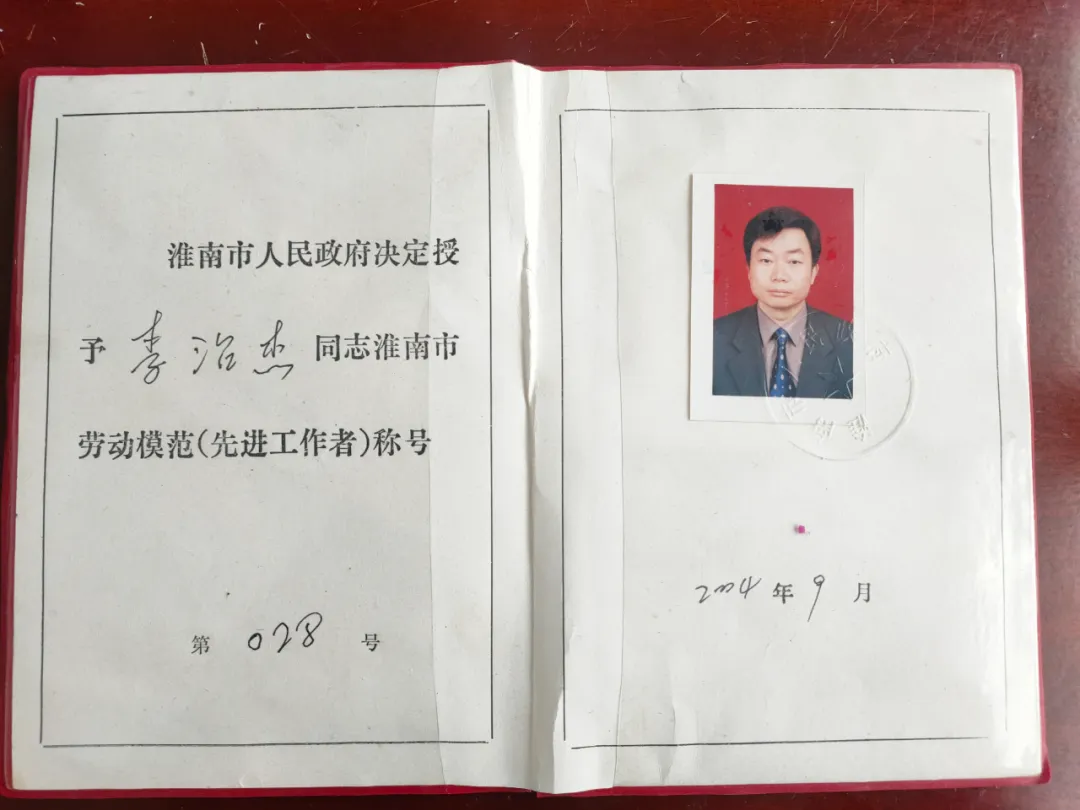 淮南市人民政府决定授
予李治杰同志淮南市
劳动模范(先进工作者)称号
第028号
2004年9月